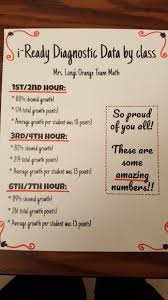 i-Ready Diagnostic Data by class
Mrs. Long: Orange Team Math
1ST/2ND HOUR:
* 88% showed growth!
* 174 total growth points!
* Average growth per student was 10 points!
3RD/4TH HOUR:
* 82% showed growth!
* 219 total growth points!
* Average growth per student was 13 points!
6TH/7TH HOUR:
* 89% showed growth!
* 216 total growth points!
* Average growth per student was 13 points!
So proud
of you all!
These are
some
amazing
numbers!!